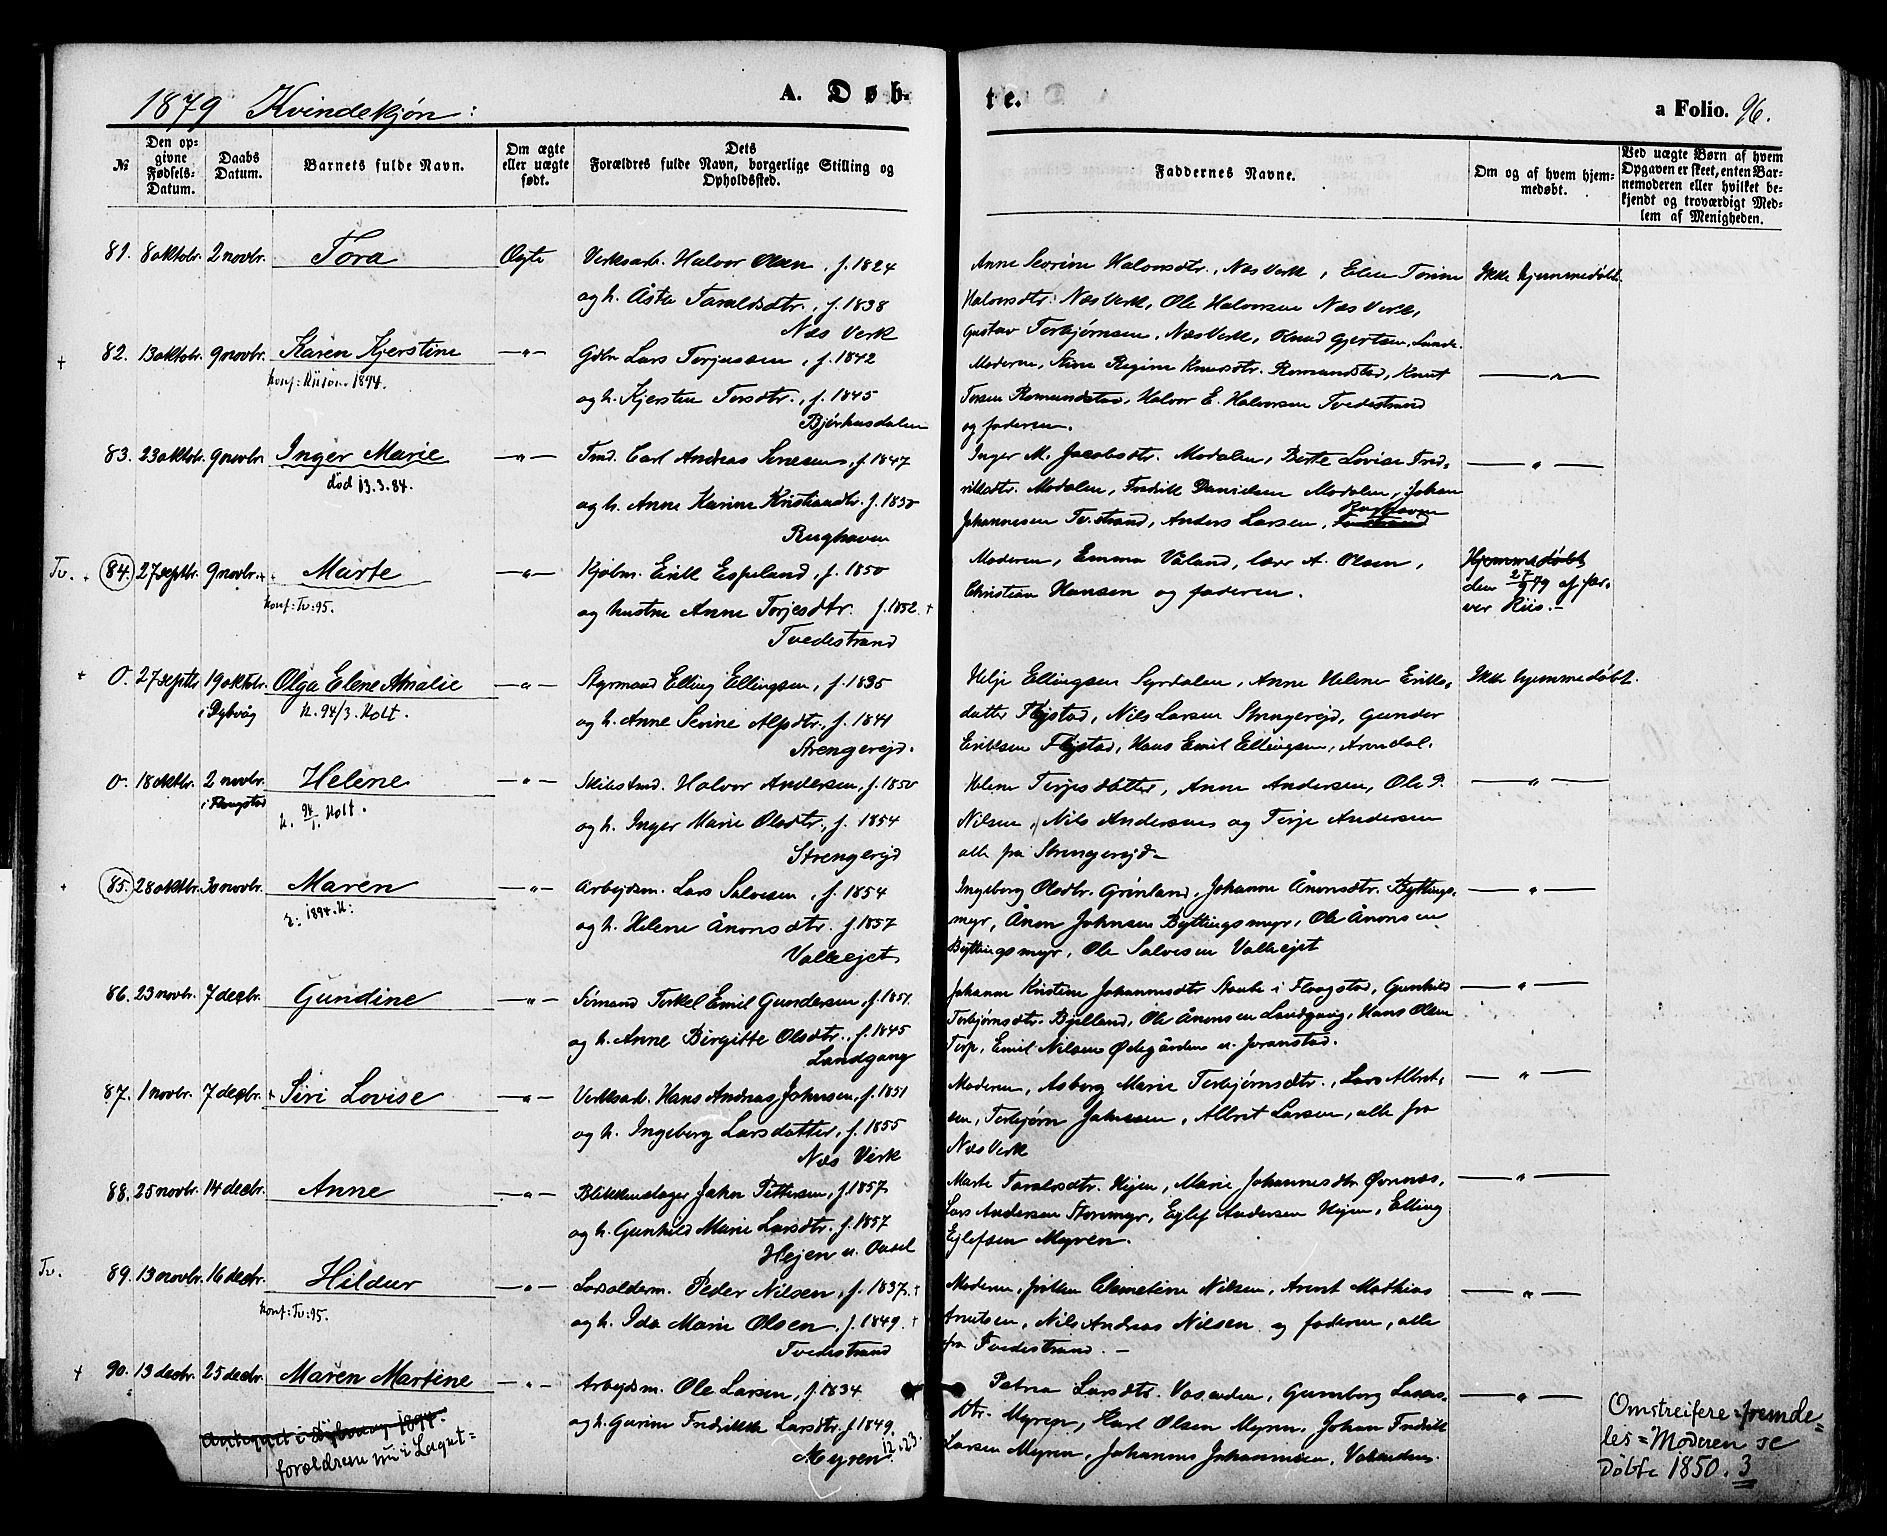 1879 Kvindekjøn:
A. Døb-
te.
a Folio. 96.
№
Den op-
givne
Fødsels-
Datum.
Daabs
Datum.
Barnets fulde Navn.
Om ægte
eller uægte
født.
Dets
Forældres fulde Navn, borgerlige Stilling og
Opholdssted.
Faddernes Navne.
Om og af hvem hjem-
medøbt.
Ved uægte Børn af hvem
Opgaven er skeet, enten Bar-
nemoderen eller hvilket be-
kjendt og troværdigt Med-
lem af Menigheden.
81. 8 oktobr. 2 novbr. Tora Ægte Verksarb. Halvor Olsen, f. 1824
og h. Åste Taraldsdtr., f. 1838
Næs Verk
Anne Severine Halvorsdtr., Næs Verk, Elen Torine
Halvorsdtr. Næs Verk, Ole Halvorsen Næs Verk,
Gustav Terbjørnsen, Næs Verk, Knud Gjertsen, Lunde.
Ikke hjemmedøbt.
+ 82. 13 oktobr. 9 novbr. Karen Kjerstine —"— Gdbr. Lars Terjussen, f. 1842
Konf: Riisør 1894.
og h. Kjersten Torsdtr., f. 1845
Bjørhusdalen
Moderen, Stine Regine Knutsdtr. Romundstad, Knut
Torsen Romundstad, Halvor E. Halvorsen Tvedestrand
og faderen.
—"—
83. 23 oktobr. 9 novbr. Inger Marie —"— Tmd. Carl Andreas Senesen, f. 1847
død 13.3.84.
og h. Anne Karine Kristiansdtr. f. 1850
Rughaven
Inger M. Jacobsdtr. Modalen, Berte Lovise Fred-
riksdtr. Modalen, Fredrik Danielsen Modalen, Johan
Johannesen Tv.strand, Anders Larsen, Rughaven
—"—
Tv. + 84. 27 septbr. 9 novbr. + Marte —"— Kjøbm. Erik Espeland, f. 1850
Konf: Tv: 95.
og hustru Anne Torjesdtr. f. 1852. +
Tvedestrand
Moderen, Emma Våland, lærer A. Olsen,
Christian Hansen og faderen.
Hjemmedøbt
den 27/9 79 af far-
ver Riis.-
+ 0. 27 septbr. 19 oktobr. Olga Elene Amalie —"— Styrmand Elling Ellingsen, f. 1835
i Dybvåg K. 94/3. Holt.
og h. Anne Serine Alfsdtr., f. 1841
Strengereid.
Helje Ellingsen Syrdalen, Anne Helene Eriks-
datter Fløistad, Nils Larsen Strengereid, Gunder
Eriksen Fløistad, Hans Emil Ellingsen, Arendal.
Ikke hjemmedøbt.
0. 18 oktbr. 2 novbr. Helene —"— Skibstmd. Halvor Andersen, f. 1850
i Flangstad K. 94/1. Holt.
og h. Inger Marie Olsdtr., f. 1854
Strengereid
Helene Terjesdatter, Anne Andersen, Ole P.
Nilsen, Nils Andersen og Terje Andersen
alle fra Strengereid.
—"—
+ 85. 28 oktbr. 30 novbr. Maren —"— Arbejdsm. Lars Salvesen, f. 1854
og h. Helene Ånonsdtr. f. 1857
Valleejet
Ingeborg Olsdtr. Grönland, Johanne Ånonsdtr. Byttings-
myr, Ånon Johnsen Byttingsmyr, Ole Ånonsen
Byttingsmyr, Ole Salvesen Valleejet
—"—
86. 23 novbr. 7 decbr. Gundine —"— Sømand Terkel Emil Gundersen, f. 1851.
og h. Anne Birgitte Olsdtr., f. 1845
Landgang
Johanne Kristine Johannesdtr Staube i Flangstad, Gunhild
Terbjørnsdtr. Bjelland, Ole Ånonsen Landgang, Hans Olsen
Terp, Emil Nilsen Ødegården u. Joranstad.
—"—
87. 1 novbr. 7 decbr. + Siri Lovise —"— Verksarb. Hans Andreas Johnsen, f. 1851
og h. Ingeborg Larsdatter, f. 1855
Næs Verk
Moderen, Asborg Marie Terbjørnsdtr., Lars Albret-
sen, Terbjørn Johnssen, Albrit Larsen, alle fra
Næs Verk
—"—
88. 25 novbr. 14 decbr. Anne —"— Blikkenslager John Pettersen, f. 1857
og h. Gunhild Marie Larsdtr. f. 1857
Hejen u. Aasel
Marte Taraldsdtr. Hejen, Marie Johannesdtr. Øvrenæs,
Lars Andersen Storemyr, Eglef Andersen Hejen, Elling
Eglefsen Myren.
—"—
Tv. 89. 13 novbr. 16 decbr. Hildur —"— Losolderm. Peder Nilsen, f. 1837. +
Konf: Tv: 95.
og h. Ida Marie Olsen, f. 1849. +
Tvedestrand
Moderen, frøken Clemetine Nilsen, Arent Mathias
Arntsen, Nils Andreas Nilsen og faderen, alle
fra Tvedestrand. —
—"—
+ 90. 13 decbr. 25 decbr. Maren Martine —"— Arbejdsm. Ole Larsen, f. 1834
og h. Gurine Fredrikke Larsdtr. f. 1849.
12.23.
Myren
forældrene nu i Laget=
Petrea Larsdtr. Vasenden, Gunborg Lars-
dtr. Myren, Karl Olsen Myren, Johan Fredrik
Larsen Myren, Johannes Johannesen, Vasenden.
—"—
Omstreifere-fremde-
les=Moderen se
Døbte 1850. 3